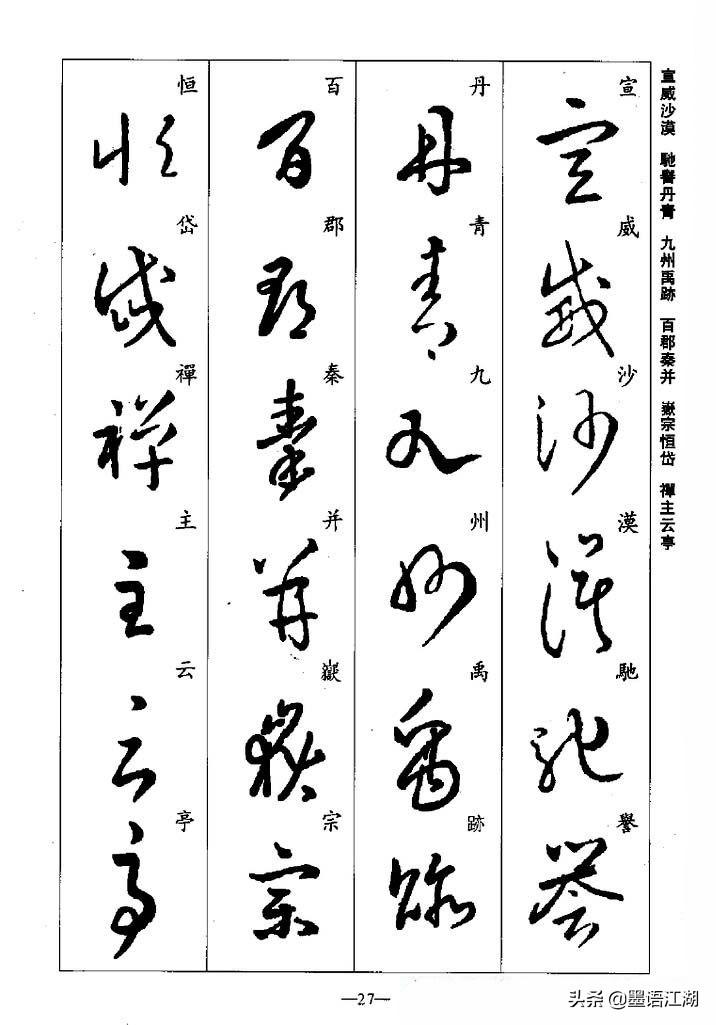 宣威沙漠 馳譽丹青 九州禹跡 百郡秦并 嶽宗恒岱 禪主云亭
宣威沙漠馳譽
丹青九州禹跡
百郡秦并嶽宗
恒岱禪主云亭
—27—
头条 @墨语江湖